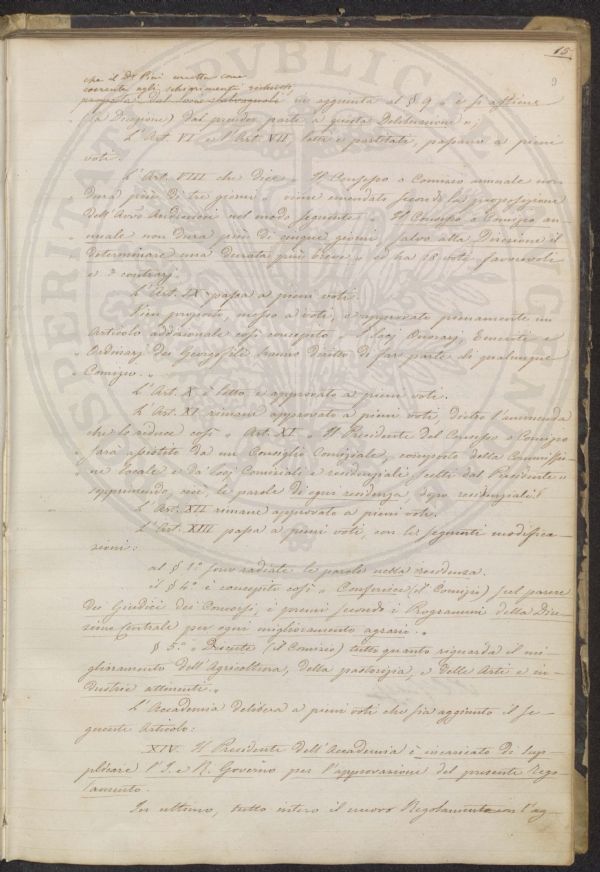 15
9
che il Dr Pini eretta come
coerente agli schiarimenti richiesti,
proposta dal in aggiunta al § 9, e si astiene
(a Dicapone) dal prender parte a questa Deliberazione ";
L'Art. VI e l'Art. VII, letti e partitati, passano a pieni
voti.
L'Art. VIII che dice = Il Consesso o Comizio annuale non
dura più di tre giorni = viene emendato secondo la proposizione
dell'Avvo Andreucci nel modo seguente = Il Consesso o Comizio an-
nuale non dura più di cinque giorni salvo alla Direzione il
determinare una durata più breve = ed ha 18 voti favorevoli
e 3 contrarj.
L'Art. IX passa a pieni voti.
Vien proposto, messo a voti, e approvato pienamente un
Articolo addizionale così concepito = I Socj Onorarj, Emeriti e
Ordinarj dei Georgofili hanno diritto di far parte di qualunque
Comizio. =
L'Art. X è letto e approvato a pieni voti.
L'Art. XI rimane approvato a pieni voti, dietro l'emmenda
che lo riduce così = Art. XI = Il Presidente del Consesso o Comizio
sarà assistito da un Consiglio Comiziale, composto della Commissio-
ne locale e da' Socj Comiziali e residenziali scelti dal Presidente =
sopprimendo, cioè, le parole di ogni residenza dopo residenziali.
L'Art. XII rimane approvato a pieni voti.
L'Art. XIII passa a pieni voti, con le seguenti modifica-
zioni:
al § 1° sono radiate le parole nella residenza.
il § 4° è concepito così = Conferisce (il Comizio) sul parere
dei Giudici dei Concorsi, i premi secondo i Programmi della Dire-
zione Centrale per ogni miglioramento agrario. =
§ 5.° = Discute (il Comizio) tutto quanto riguarda il mi-
glioramento dell'Agricoltura, della pastorizia, e delle Arti e in-
dustrie attinenti. =
L'Accademia delibera a pieni voti che sia aggiunto il se-
guente Articolo:
XIV. Il Presidente dell'Accademia è incaricato di sup-
plicare l'I. e R. Governo per l'approvazione del presente Rego-
lamento.
In ultimo, tutto intero il nuovo Regolamento con l'ag-